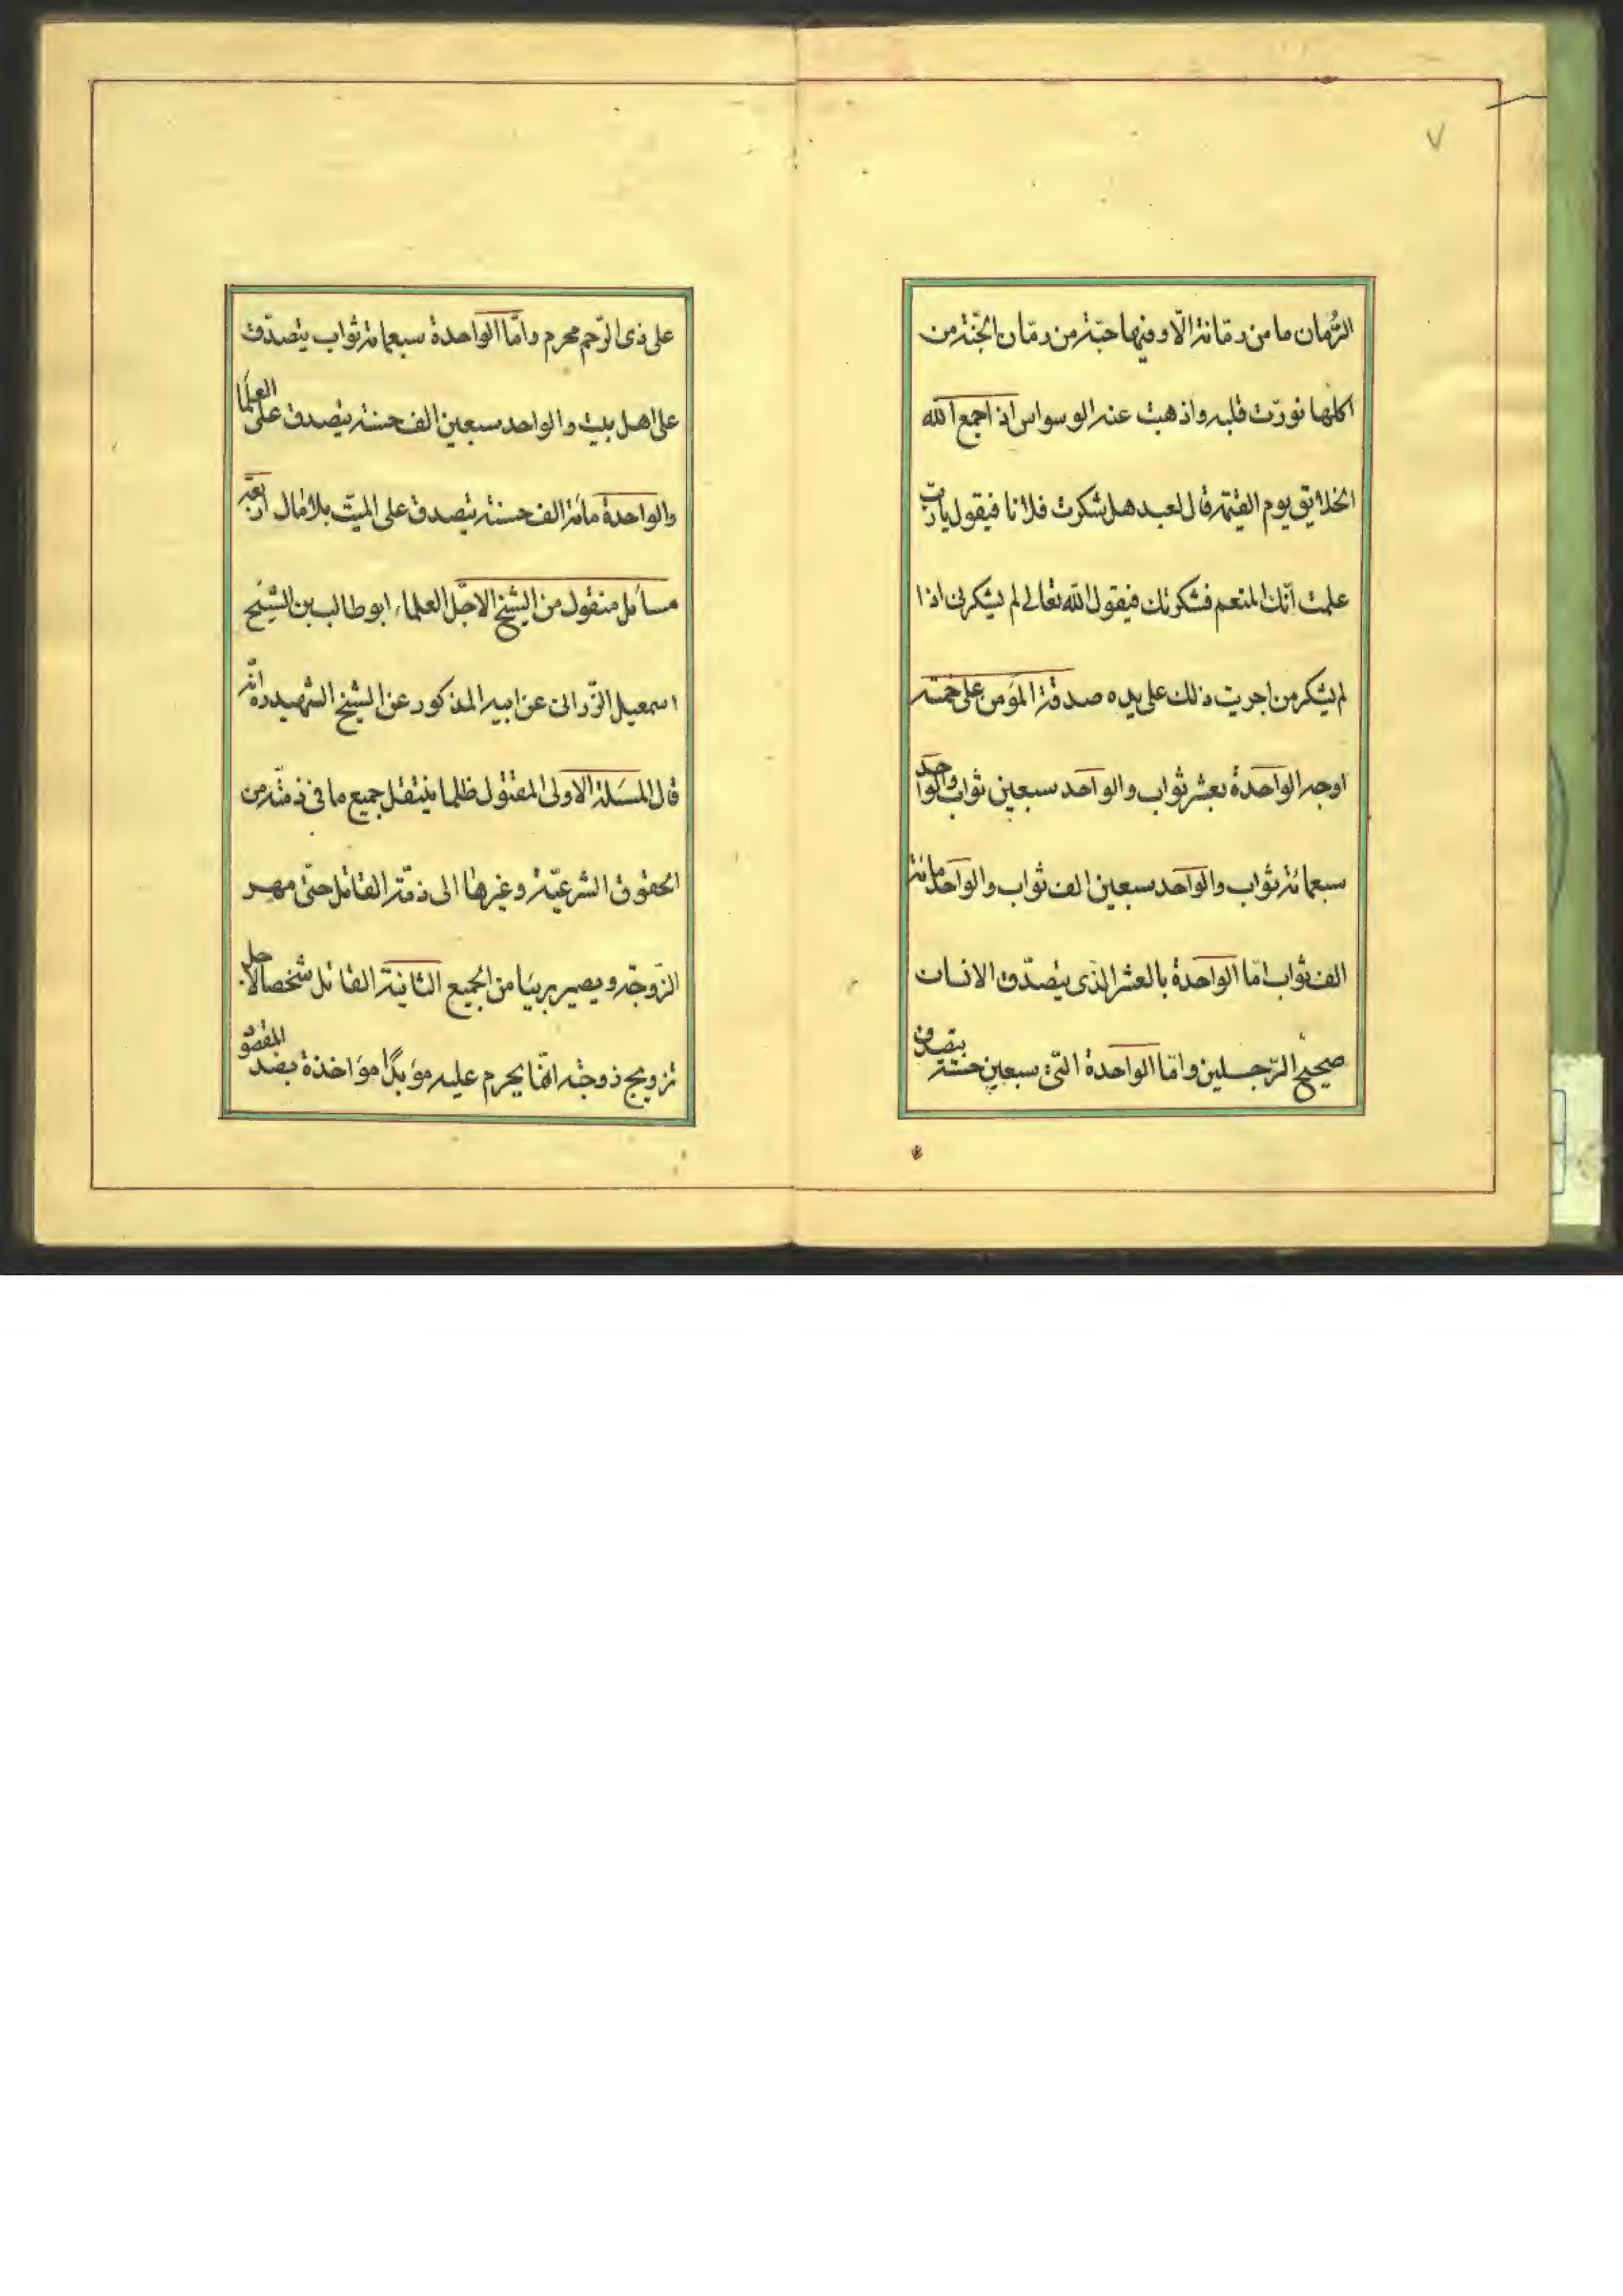 ٧
الرُّمان ما من رمّانة الّا وفيها حبّة من رمّان الجنّة من
اكلها نورّت قلبه واذهبت عنه الوسواس اذ اجمع الله
الخلايق يوم القيمة قال لعبد هل شكرت فلانا فيقول يا ربّ
علمت انّك المنعم فشكرتك فيقول الله تعالى لم يشكرنى اذا
لم يشكر من اجريت ذلك على يده صدقة المؤمن على خمسة
اوجه الواحدة بعشر ثواب والواحد سبعين ثواب والواحد
سبعمائة ثواب والواحد سبعين الف ثواب والواحد مائة
الف ثواب امّا الواحدة بالعشر الذّى يتصدّق الانسان
صحيح الرّجلين وامّا الواحدة التّى سبعين حسنة يتصدق
على ذى الرّحم محرم وامّا الواحدة سبعمائة ثواب يتصدّق
على اهل بيت والواحد سبعين الف حسنة يتصدق على العلما
والواحدة مائة الف حسنة يتصدق على الميّت بلا مال اربعة
مسائل منقول من الشيخ الاجلّ العلماء ابو طالب بن الشيخ
اسمعيل الرّزانى عن ابيه المذكور عن الشيخ الشهيد ره انّه
قال المسئلة الاولى المقتول ظلما ينتقل جميع ما فى ذمّته من
الحقوق الشرعيّة وغيرها الى ذمّة القاتل حتّى مهر
الزّوجّه ويصير بريئا من الجميع الثانية القاتل شخصا لاجل
تزويج زوجته انّها يحرم عليه مؤبدًا مؤاخذة بضد المقصو